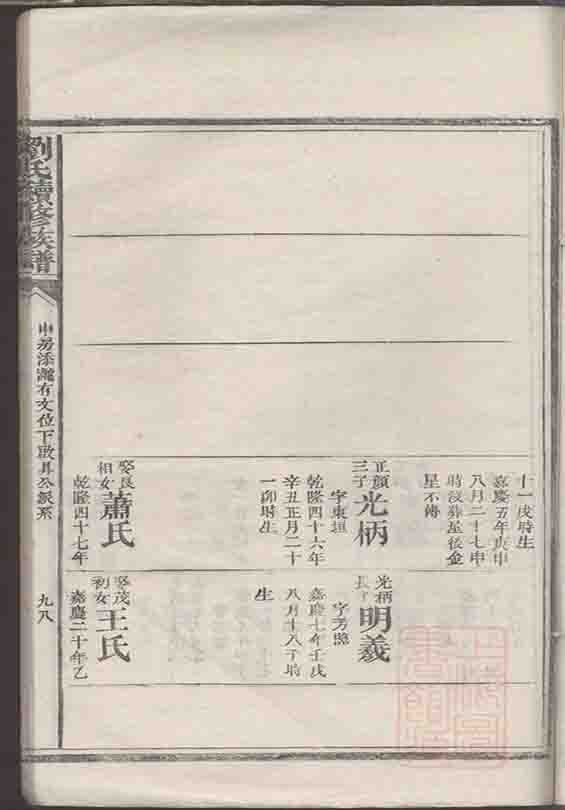 劉氏續修族譜
九八
十一戌時生
嘉慶五年庚申
八月二十七申
時沒葬屋後金
星不傳
正顏
三子
光柄
字東垣
乾隆四十六年
辛丑正月二十
一卯時生
娶長
相女
蕭氏
乾隆四十七年
光柄
長子
明義
字芳謨
嘉慶七年壬戌
八月十八子時
生
娶茂
初女
王氏
嘉慶二十年乙